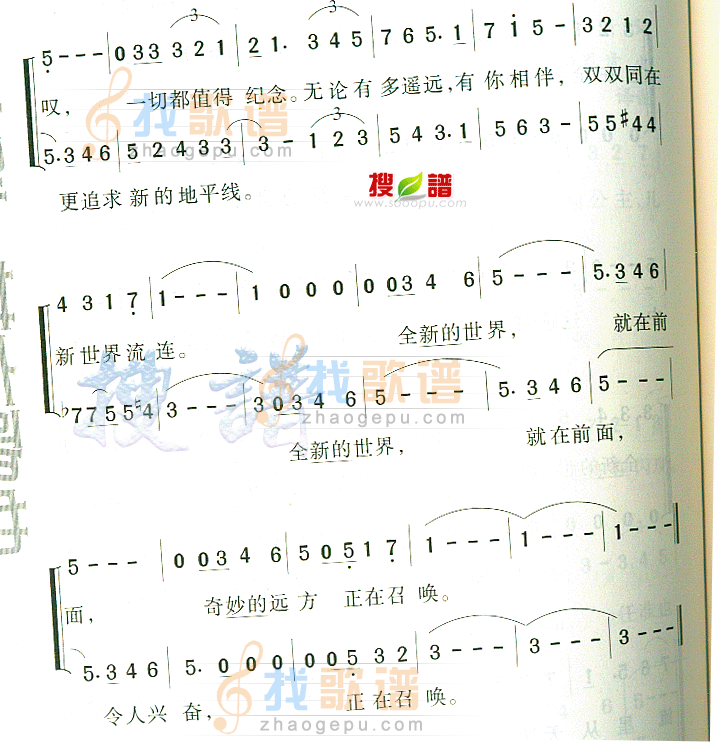 3 3
5 - - - | 0 3 3 3 2 1 | 2 1. 3 4 5 | 7 6 5. 1 | 7 i 5 - | 3 2 1 2
叹， 一切都值得 纪念。无论有多遥远,有你相伴， 双双同在
3
5. 3 4 6 | 5 2 4 3 3 | 3 - 1 2 3 | 5 4 3. 1 | 5 6 3 - | 5 5 #4 4
更追求新的地平线。
搜谱
www.sooopu.com
找歌谱
zhaogepu.com
4 3 1 7 | 1 - - - | 1 0 0 0 | 0 0 3 4 6 | 5 - - - | 5. 3 4 6
新世界流连。 全新的世界， 就在前
♭7 7 5 5 ♮4 | 3 - - - | 3 0 3 4 6 | 5 - - - | 5. 3 4 6 | 5 - - -
全新的世界， 就在前面，
搜谱
找歌谱
zhaogepu.com
5 - - - | 0 0 3 4 6 | 5 0 5 1 7 | 1 - - - | 1 - - - | 1 - - -
面， 奇妙的远方 正在召唤。
5. 3 4 6 | 5. 0 0 0 | 0 0 5 3 2 | 3 - - - | 3 - - - | 3 - - -
令人兴奋， 正在召唤。
找歌谱
zhaogepu.com